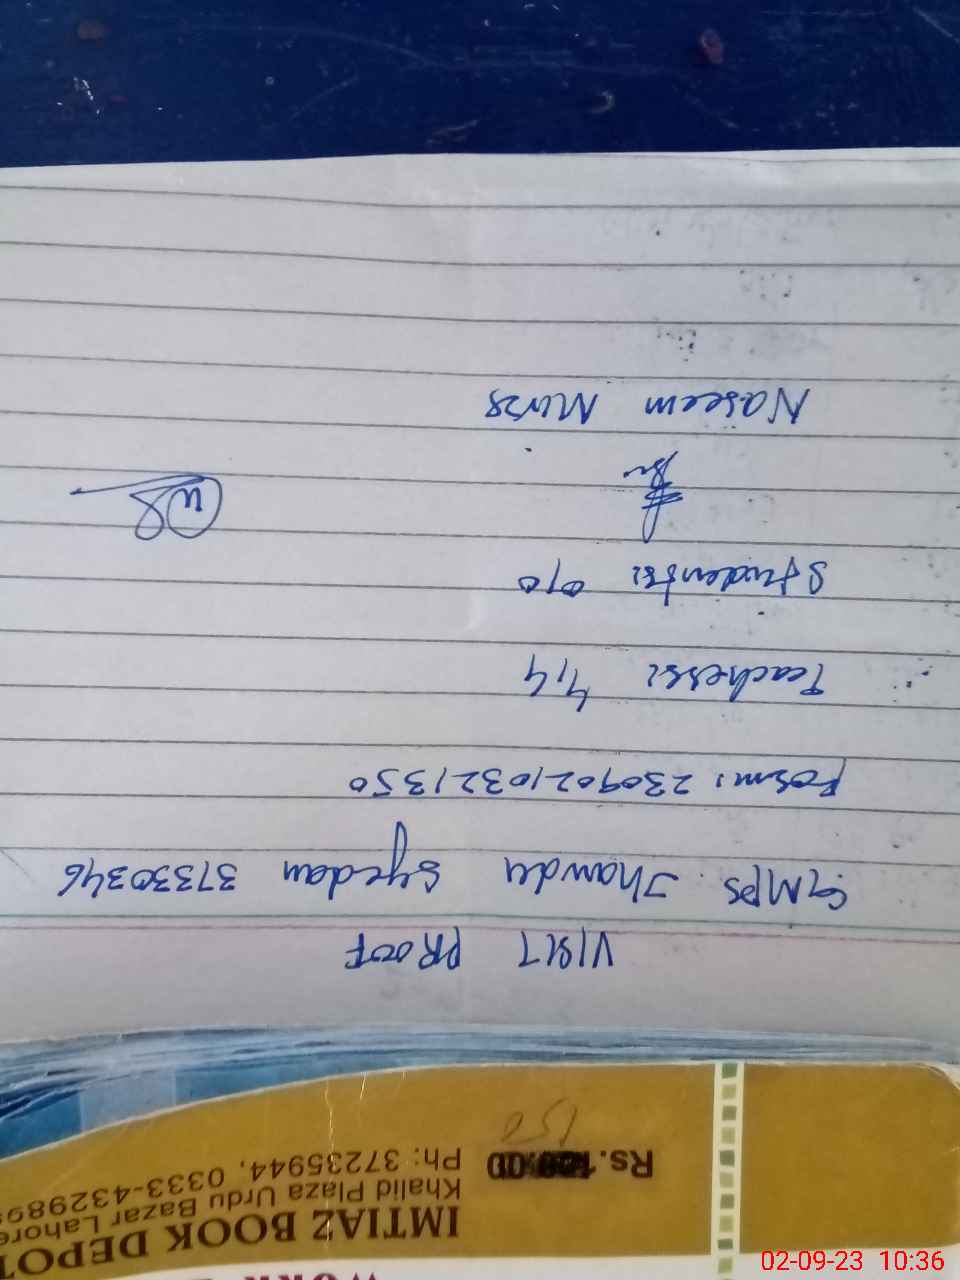 VISIT PROOF
GMPS Jhamda Syedan 37330346
Form: 2309021032,1350
Teachers: 4,4
Students: 0,0
Naseem
Rs.
150
IMTIAZ BOOK DEPOT
Khalid Plaza Urdu Bazar Lahore
Ph: 37235944, 0333-432989
02-09-23 10:36